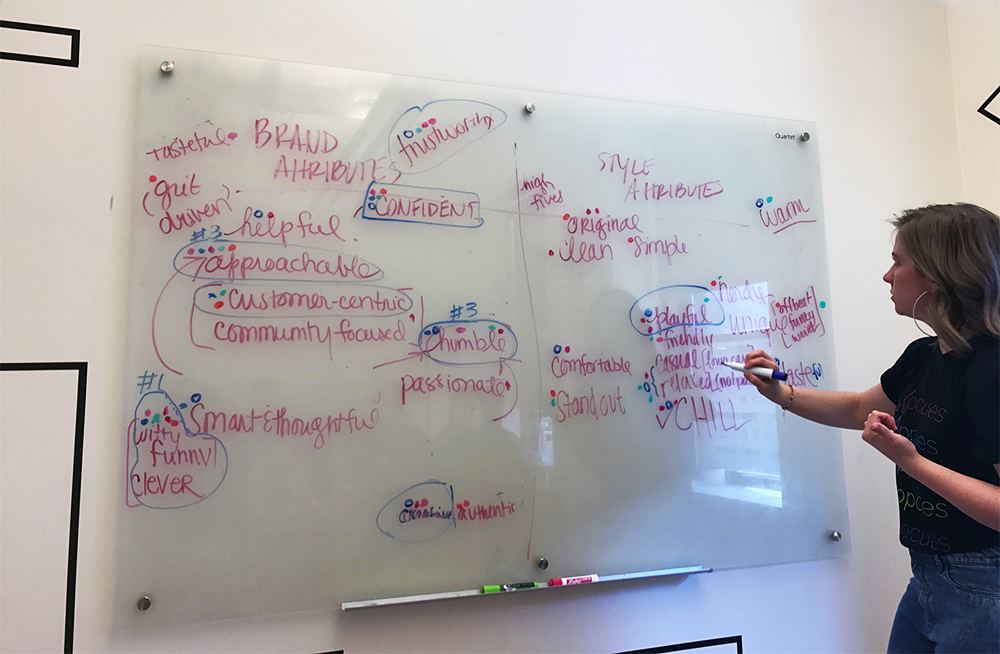 tasteful
BRAND
ATTRIBUTES
trustworthy
(grit
driven)
CONFIDENT
helpful
#3
approachable
customer-centric
community focused
#3
humble
passionate
#1
smart & thoughtful
witty
funny
clever
authentic
Quartet
STYLE
ATTRIBUTES
high
fives
original
clean simple
warm
playful
friendly
casual
relaxed
CHILL
unique
offbeat
funky
weird
comfortable
stand out